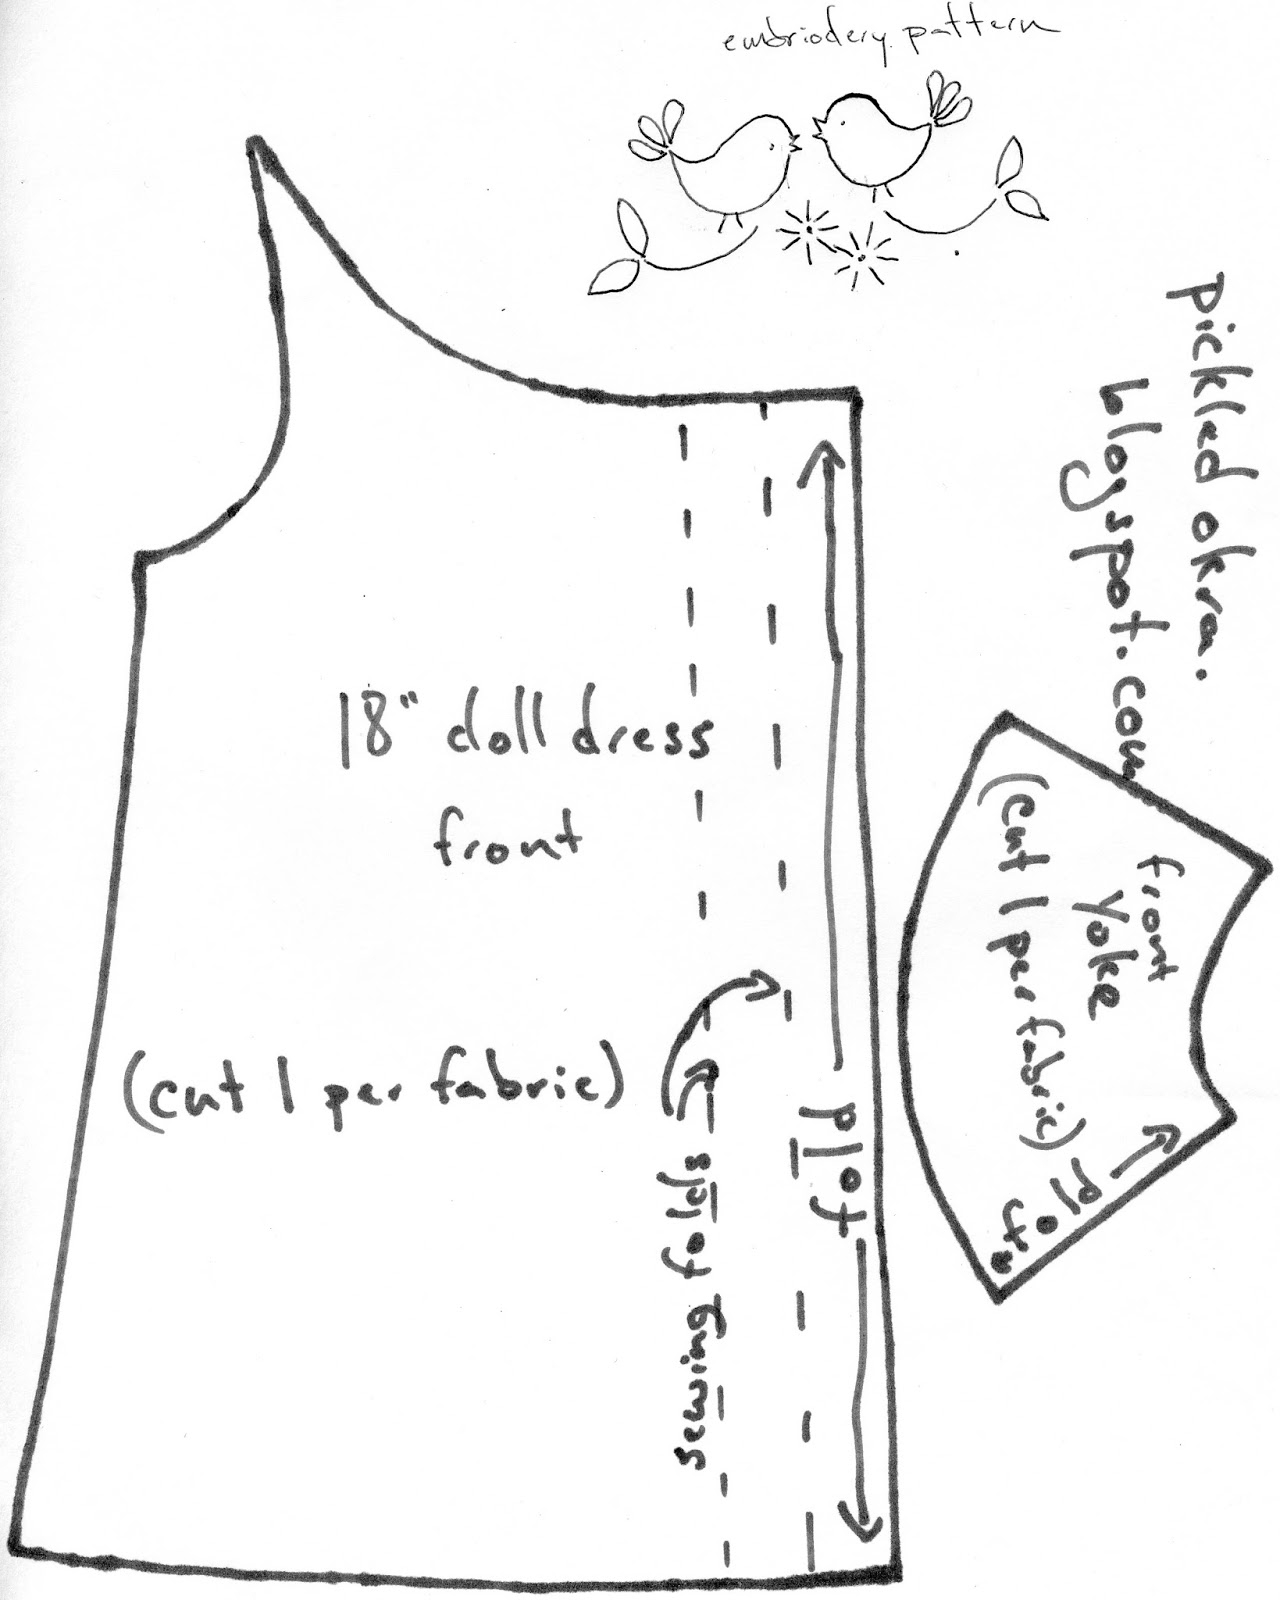 embriodery pattern
pickled okra.
blogspot.com
18" doll dress
front
(cut 1 per fabric)
sewing folds
fold
front
yoke
(cut 1 per fabric)
fold